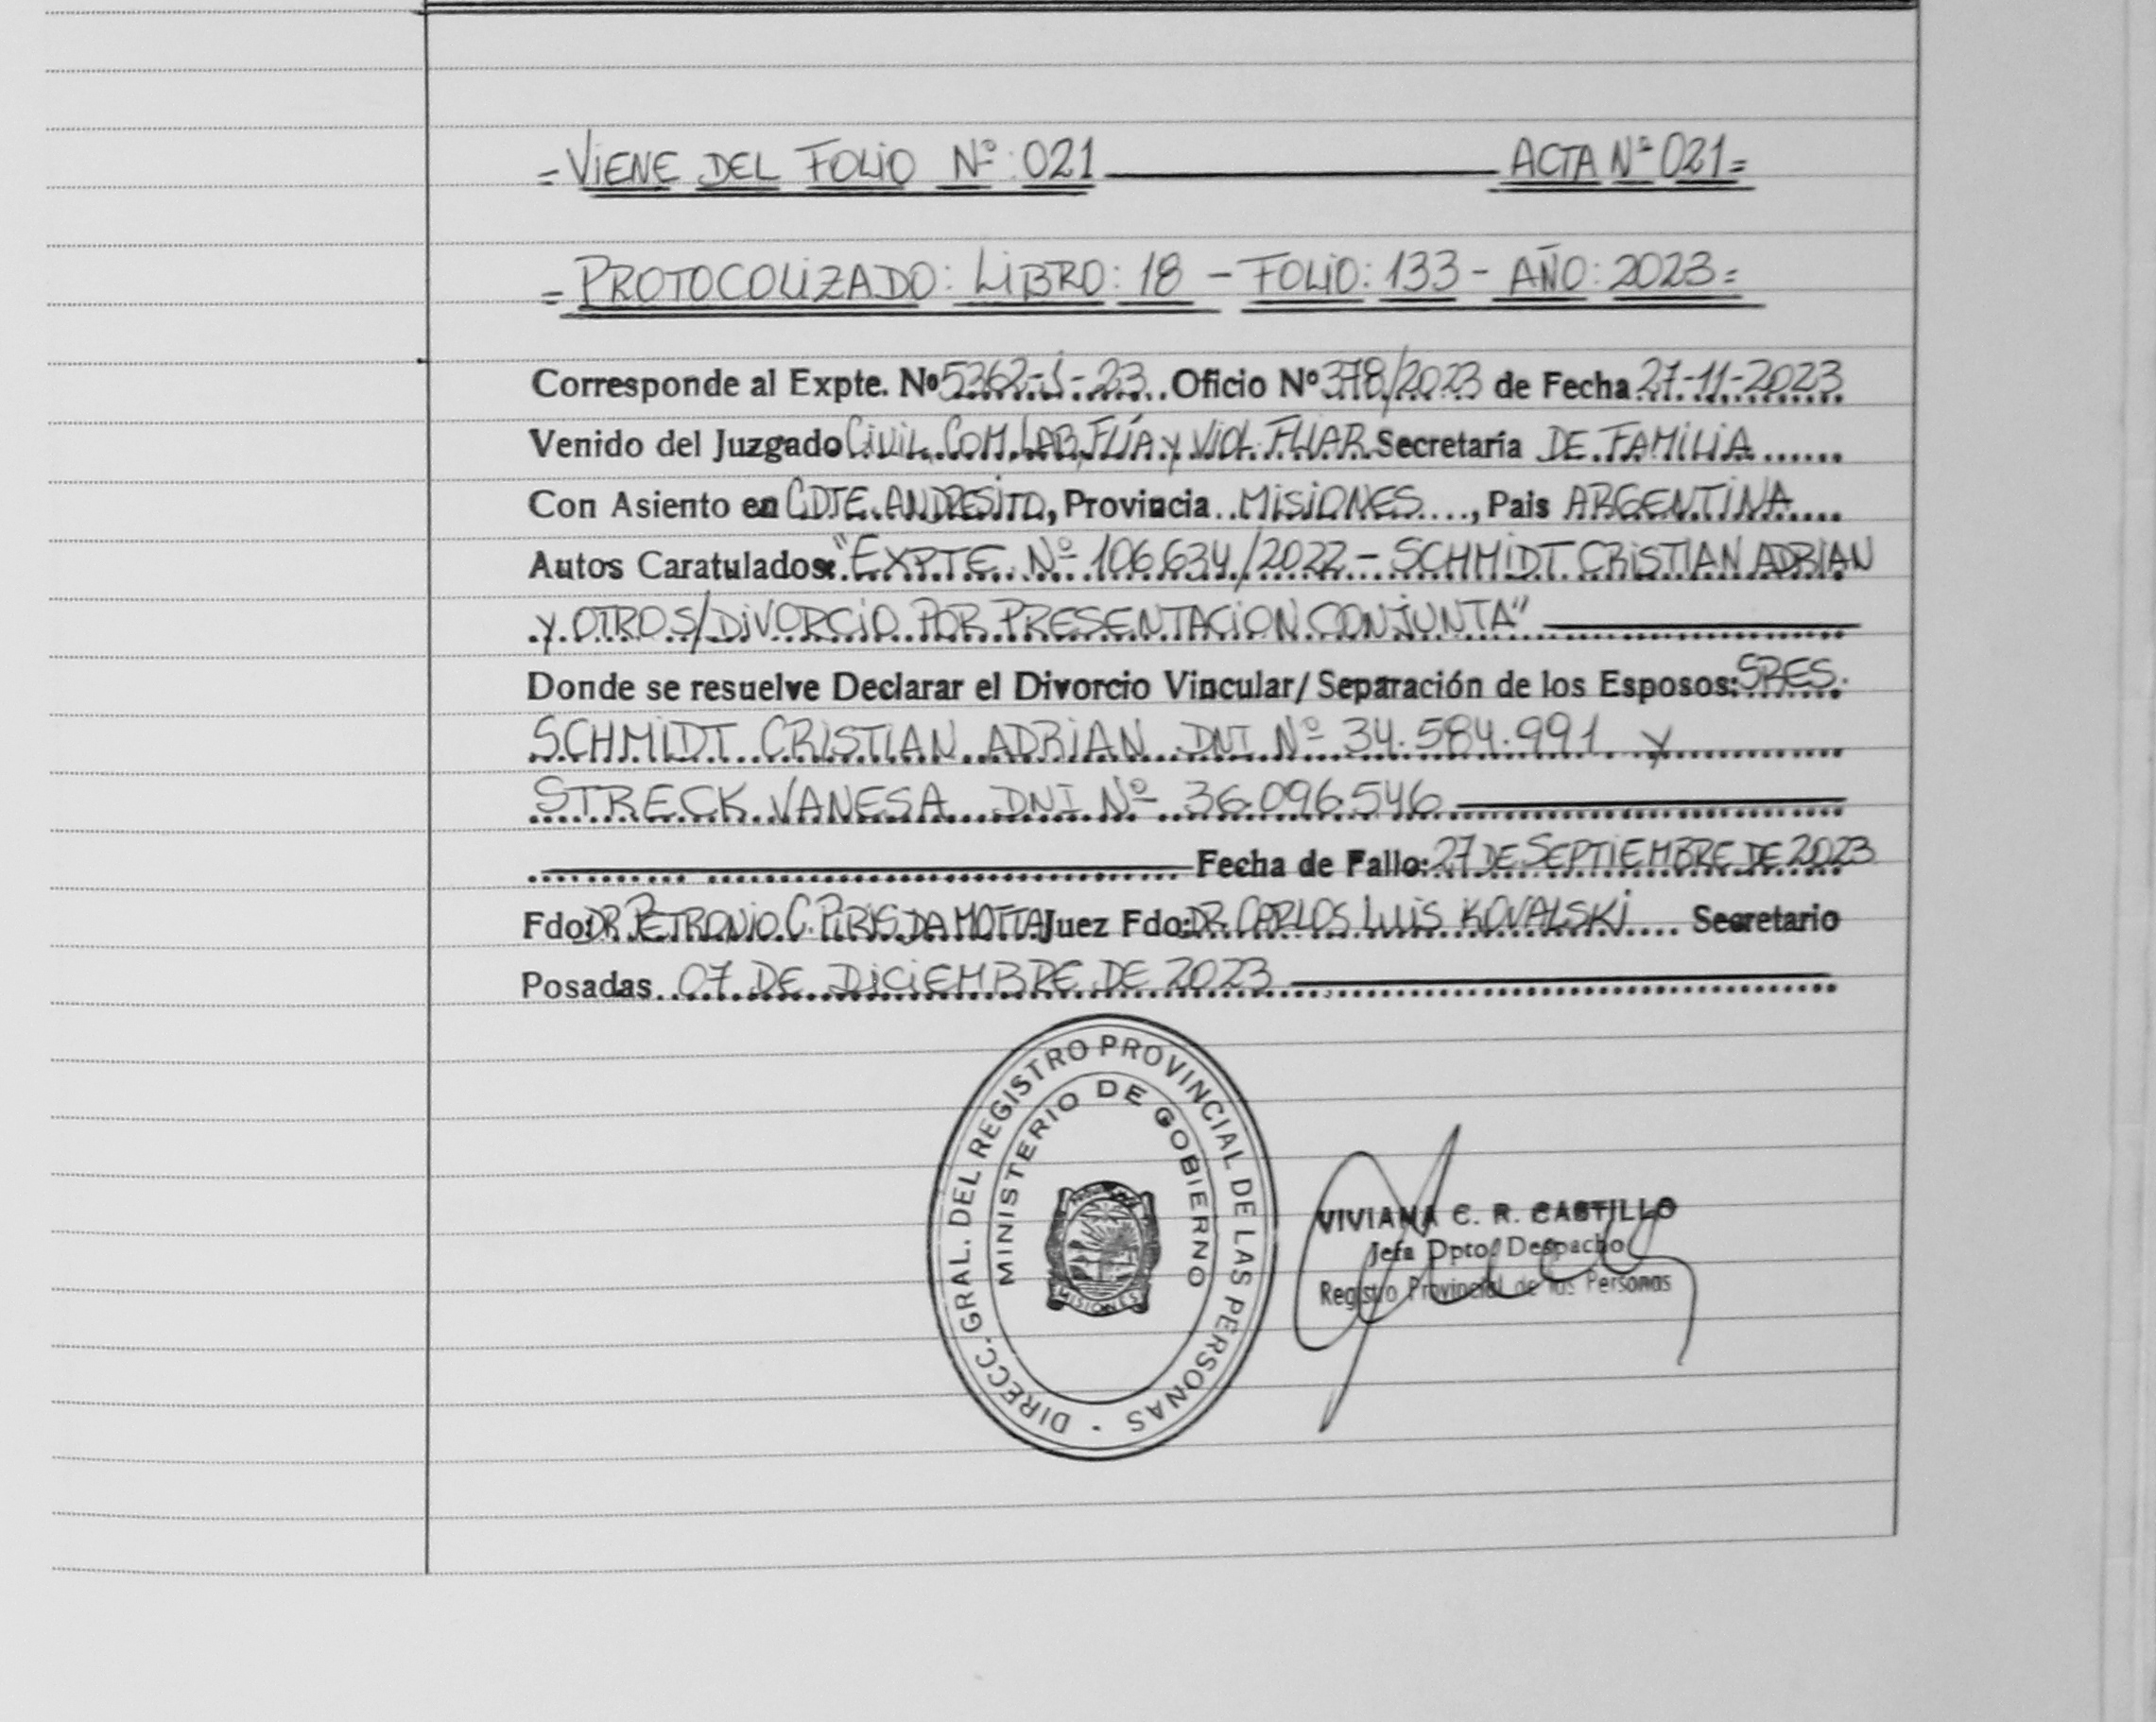 =VIENE DEL FOLIO Nº: 021 ACTA Nº 021=
=PROTOCOLIZADO: LIBRO: 18 - FOLIO: 133 - AÑO: 2023=
Corresponde al Expte. Nº 5362-J-23 Oficio Nº 378/2023 de Fecha 27-11-2023
Venido del Juzgado CIVIL, COM, LAB, FLÍA y VIOL. FLIAR Secretaría DE FAMILIA
Con Asiento en CDTE. ANDRESITO, Provincia MISIONES, Pais ARGENTINA
Autos Caratulados: "EXPTE. Nº 106.634/2022 - SCHMIDT CRISTIAN ADRIAN
Y OTRO S/DIVORCIO POR PRESENTACION CONJUNTA"
Donde se resuelve Declarar el Divorcio Vincular/ Separación de los Esposos: SRES.
SCHMIDT CRISTIAN ADRIAN DNI Nº 34.584.991 Y
STRECK VANESA DNI Nº 36.096.546
Fecha de Fallo: 27 DE SEPTIEMBRE DE 2023
Fdo: DR. PETRONIO C. PIRIS DA MOTTA Juez Fdo: DR. CARLOS LUIS KOVALSKI Secretario
Posadas 07 DE DICIEMBRE DE 2023
DIRECC. GRAL. DEL REGISTRO PROVINCIAL DE LAS PERSONAS
MINISTERIO DE GOBIERNO
MISIONES
VIVIANA C. R. CASTILLO
Jefa Dpto. Despacho
Registro Provincial de las Personas